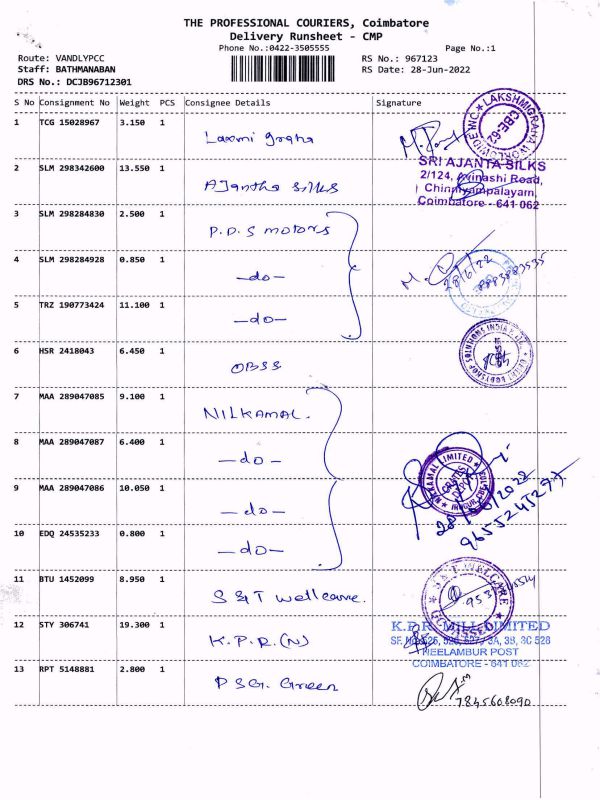 THE PROFESSIONAL COURIERS, Coimbatore
Delivery Runsheet - CMP
Phone No.:0422-3505555 Page No.:1
Route: VANDLYPCC RS No.: 967123
Staff: BATHMANABAN RS Date: 28-Jun-2022
DRS No.: DCJB96712301
S No Consignment No Weight PCS Consignee Details Signature
1 TCG 15028967 3.150 1 Laxmi graha
LAKSHMIGRAHA WORLDWIDE INC
CBE-62
2 SLM 298342600 13.550 1 AJantha silks
SRI AJANTA SILKS
2/124, Avinashi Road,
Chinniyampalayam,
Coimbatore - 641 062
3 SLM 298284830 2.500 1 P.D.S motors
4 SLM 298284928 0.850 1 -do-
28/6/22
8883883535
5 TRZ 190773424 11.100 1 -do-
6 HSR 2418043 6.450 1 OBSS
7 MAA 289047085 9.100 1 NILKAMAL.
8 MAA 289047087 6.400 1 -do-
NILKAMAL LIMITED
9 MAA 289047086 10.050 1 -do-
10 EDQ 24535233 0.800 1 -do-
11 BTU 1452099 8.950 1 S &T wellcare.
S & T WELCARE
12 STY 306741 19.300 1 K.P.R.(N)
K.P.R. MILL LIMITED
NEELAMBUR POST
COIMBATORE - 641 062
13 RPT 5148881 2.800 1 PSG. Green
7845608090